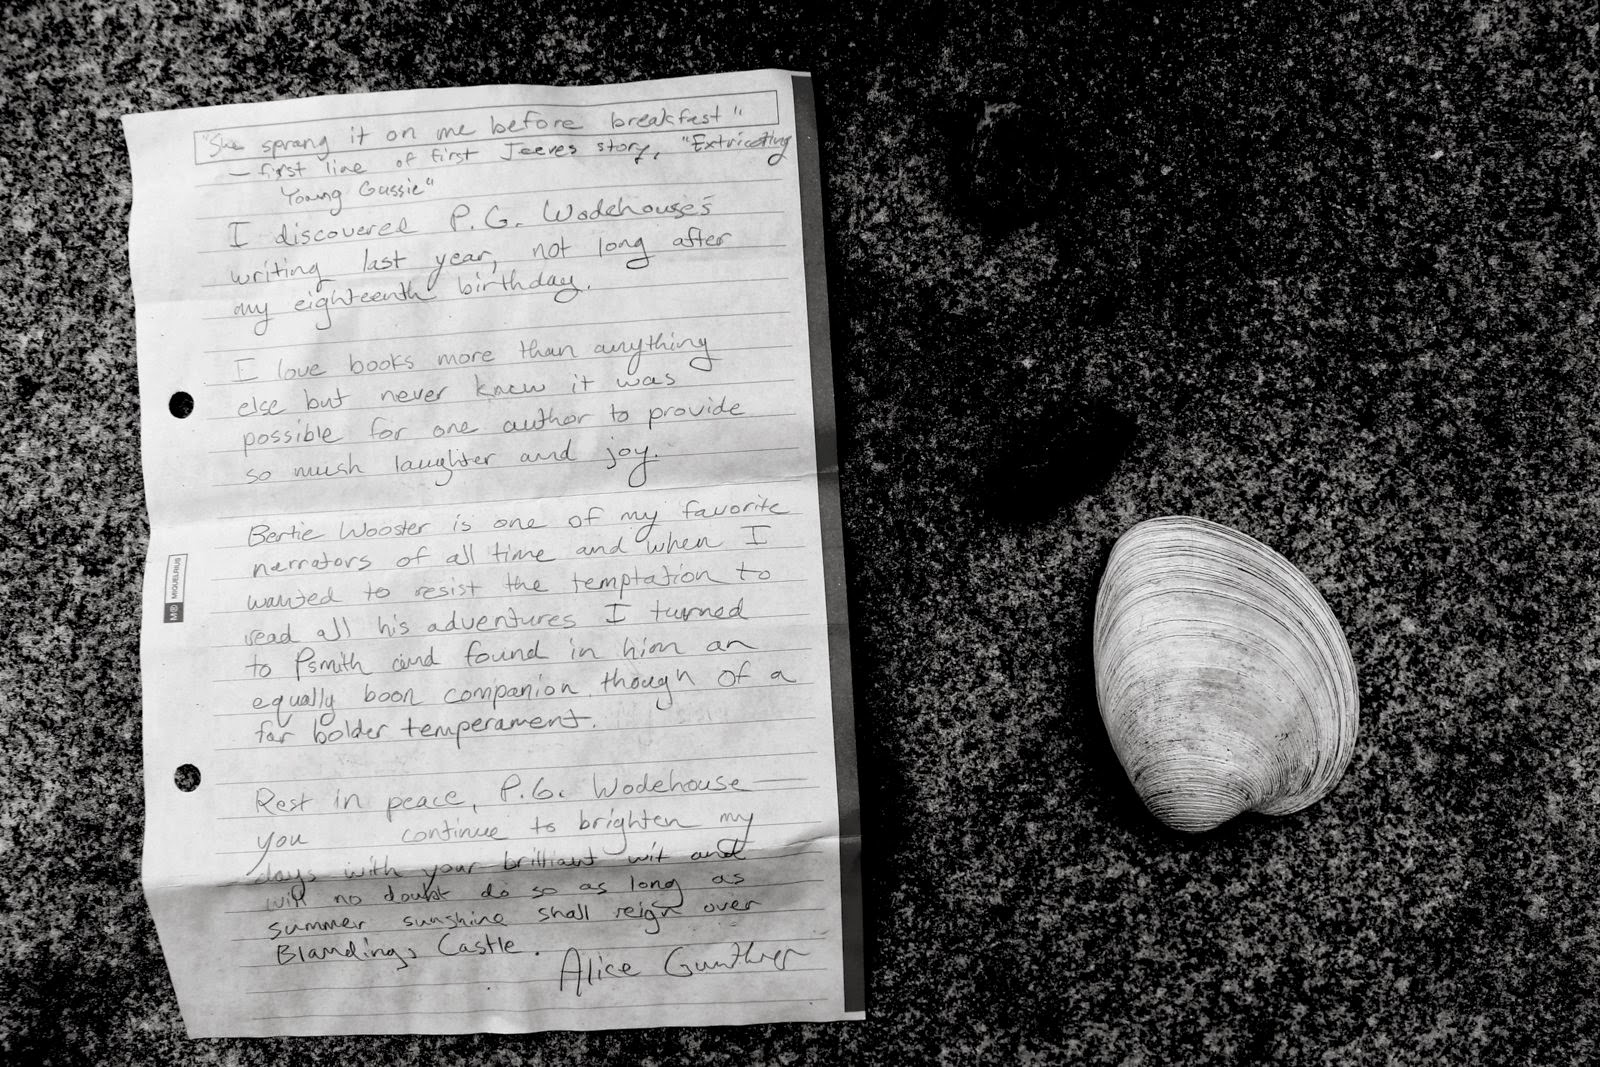 "She sprang it on me before breakfast"
— first line of first Jeeves story, "Extricating
Young Gussie"
I discovered P.G. Wodehouse's
writing last year, not long after
my eighteenth birthday.
I love books more than anything
else but never knew it was
possible for one author to provide
so much laughter and joy.
Bertie Wooster is one of my favorite
narrators of all time and when I
wanted to resist the temptation to
read all his adventures I turned
to Psmith and found in him an
equally boon companion, though of a
far bolder temperament.
Rest in peace, P.G. Wodehouse —
you continue to brighten my
days with your brilliant wit and
will no doubt do so as long as
summer sunshine shall reign over
Blandings Castle.
Alice Gunther
MIQUELRIUS